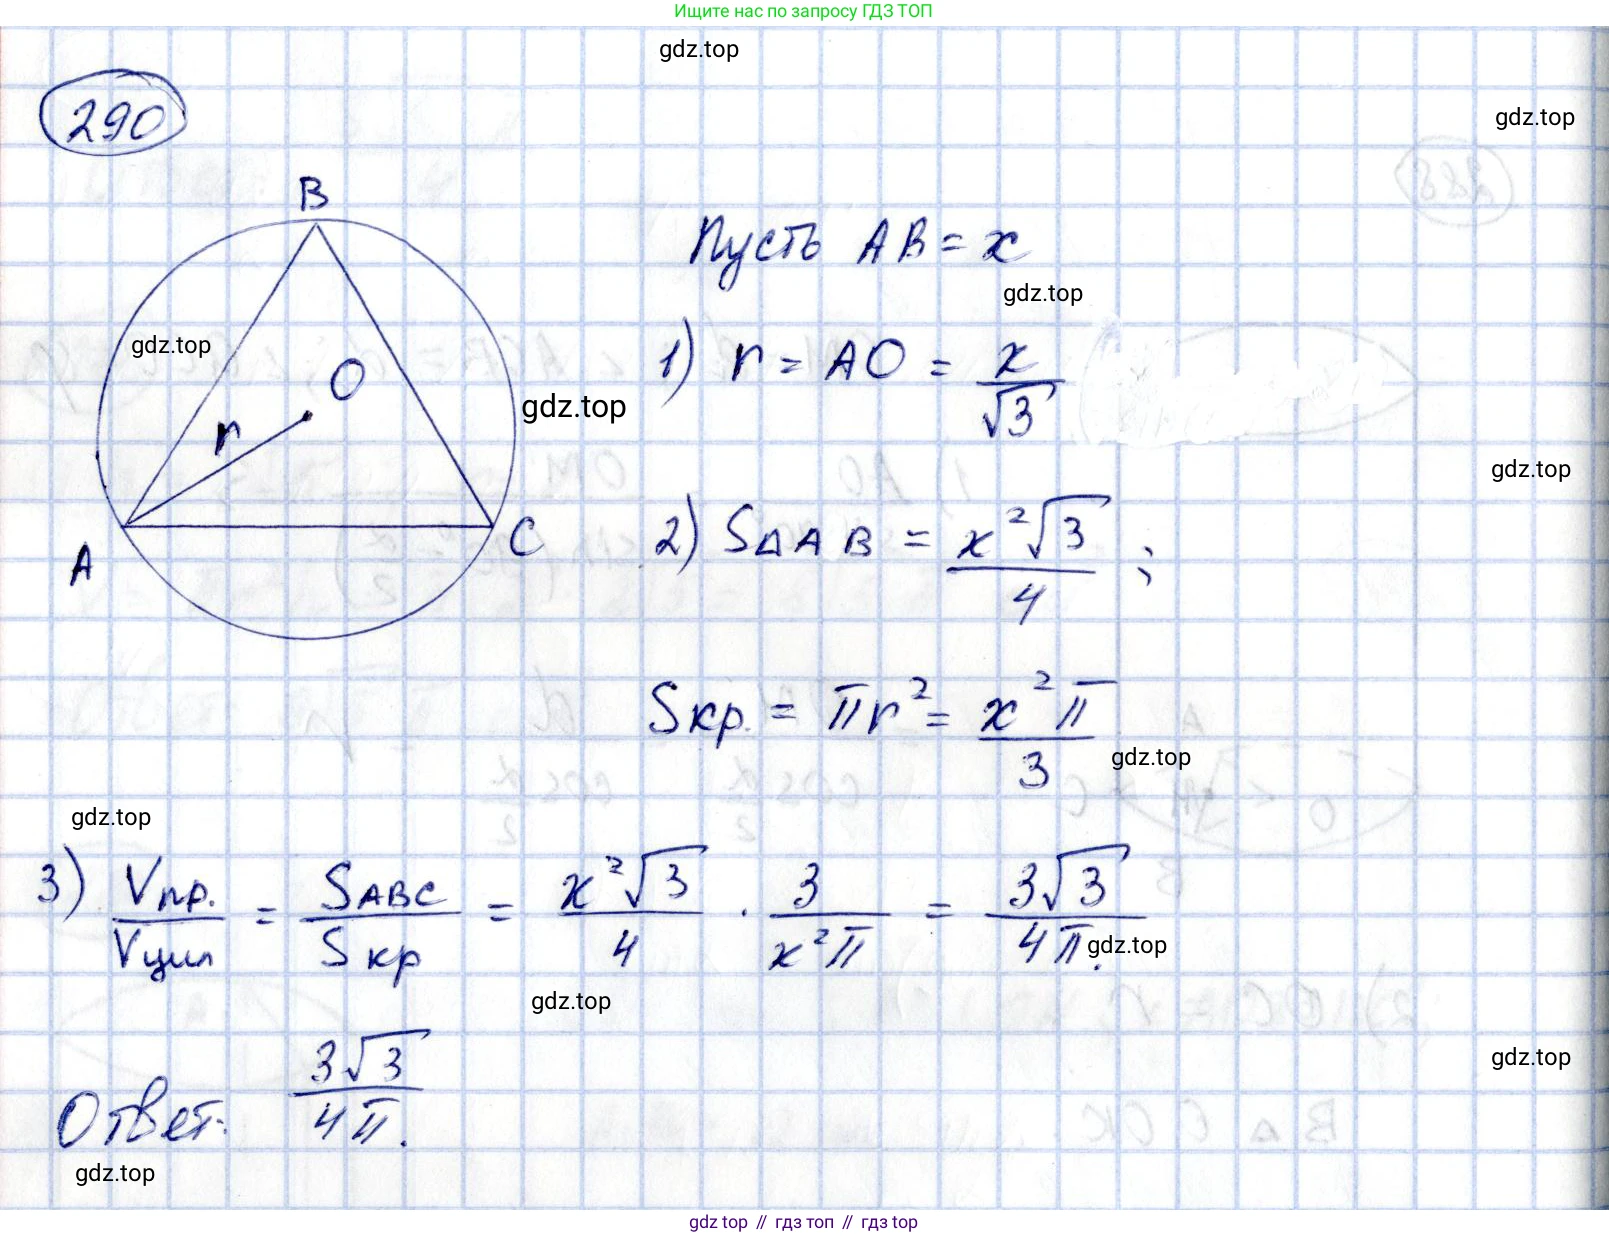 Ищите нас по запросу ГДЗ ТОП
gdz.top
290
gdz.top
B
Пусть AB = x
gdz.top
gdz.top
O
r
gdz.top
1) r = AO = x/√3
A
C
gdz.top
2) S△AB = x²√3/4 ;
Sкр. = πr² = x²π/3
gdz.top
gdz.top
3) Vпр./Vцил = SABC/Sкр = x²√3/4 · 3/x²π = 3√3/4π.
gdz.top
gdz.top
gdz.top
Ответ: 3√3/4π.
gdz.top
gdz.top // гдз топ // гдз top